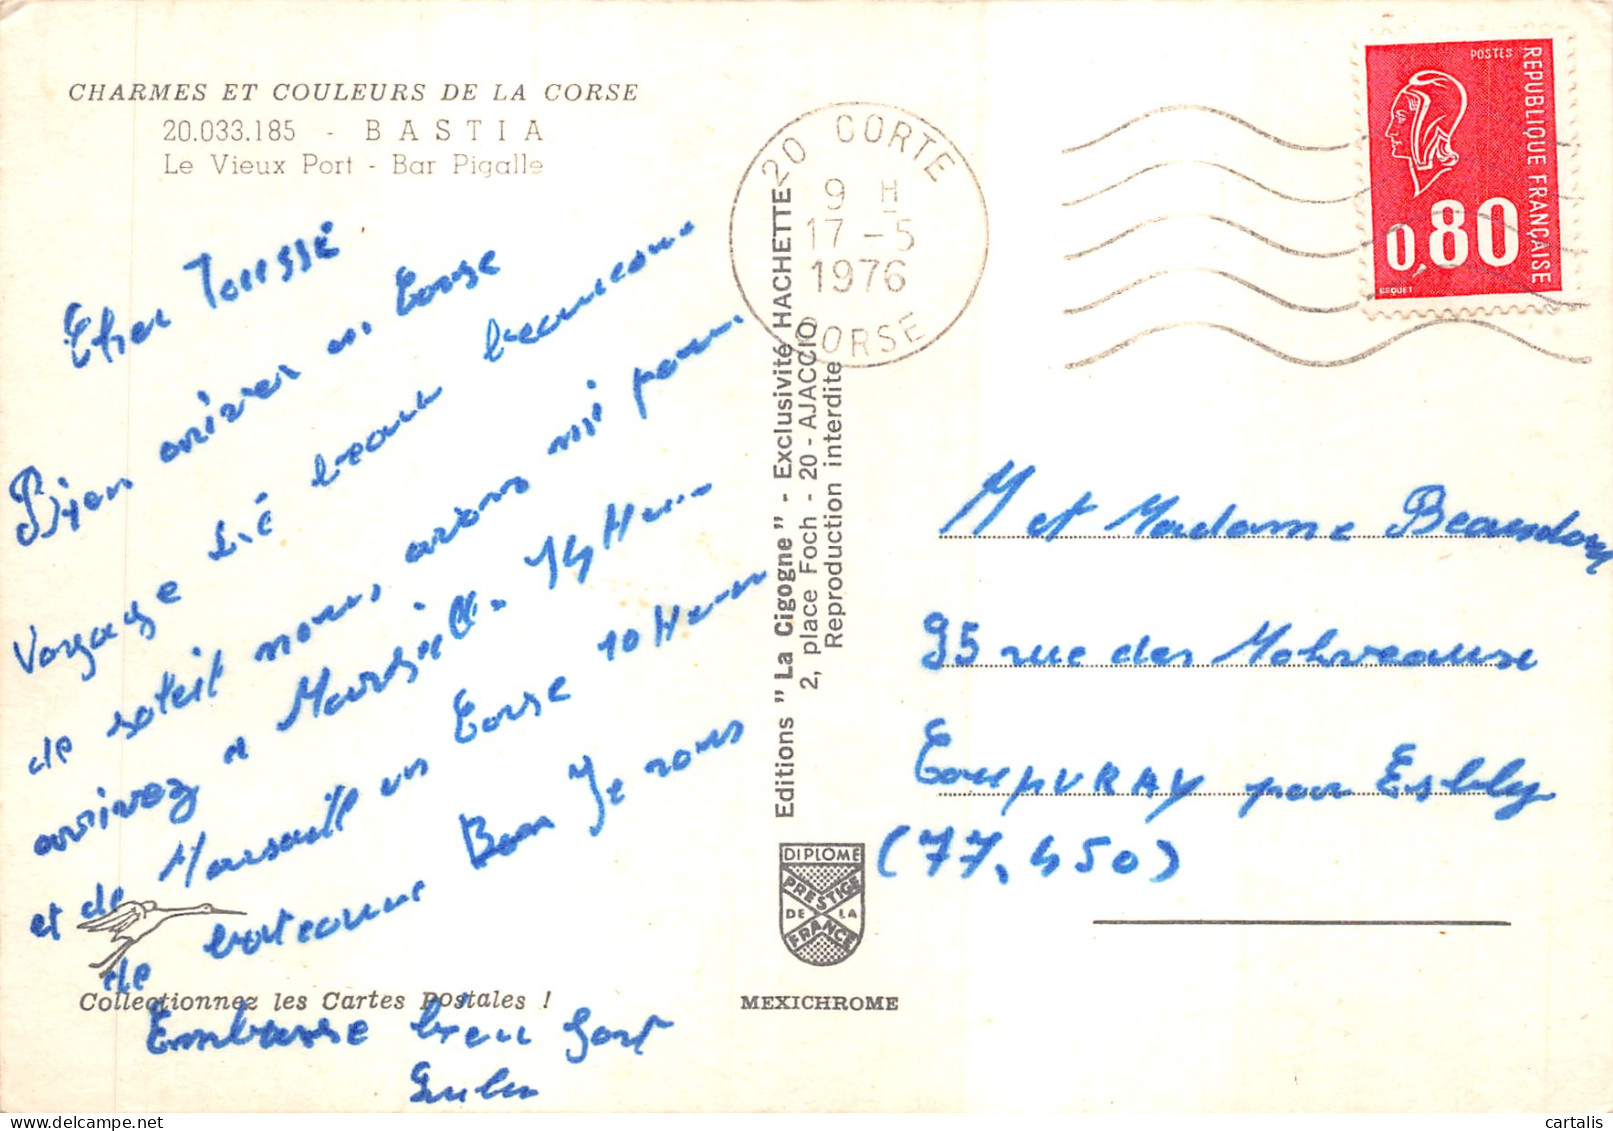 CHARMES ET COULEURS DE LA CORSE
20.033.185 - BASTIA
Le Vieux Port - Bar Pigalle
Cher Tousse
Bien arrivez en Corse
voyage beaux beaucoup
de soleil nous avons mi pour
arrivez a Marseill. 14 Heu..
et de Marseill en Corse 10 Heur
de bateau Bon Je vous
Embrasse bien fort
Collectionnez les Cartes Postales !
20 CORTE
9 H
17-5
1976
CORSE
Editions "La Cigogne" - Exclusivité HACHETTE
2, place Foch - 20 - AJACCIO
Reproduction interdite
DIPLOME
PRESTIGE
DE LA
FRANCE
MEXICHROME
POSTES
REPUBLIQUE FRANÇAISE
0,80
BEQUET
M et Madame
95 rue des
CoupVRAY par Esbly
(77.450)
cartalis